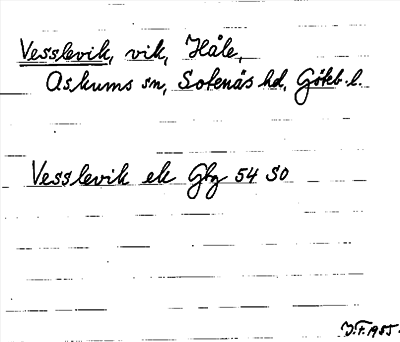 Vesslevik, vik, Håle,
Askums sn, Sotenäs hd, Göteb. l.
Vesslevik ek Gbg 54 SO
1955.